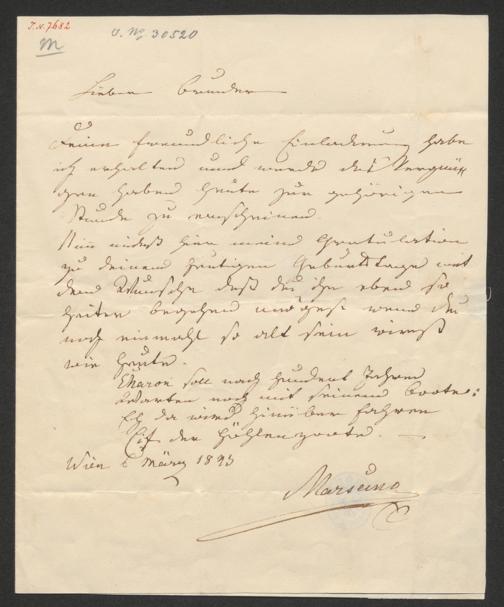 I.N. 7682
M
U. No 30520
Lieber Bruder
Deine freundliche Einladung habe
ich erhalten und werde das Vergnü-
gen haben heute zur gehörigen
Stunde zu erscheinen.
Nim indeß hier meine Gratulation
zu deinem heutigen Geburtstage mit
dem Wunsche daß du ihn eben so
heiter begehen mögest wenn du
noch einmahl so alt sein wirst
wie heute.
Charon soll nach hundert Jahren
Warten noch mit seinem Boote:
Eh du wirst hinüber fahren
der Höhlengrotte.
Wien März